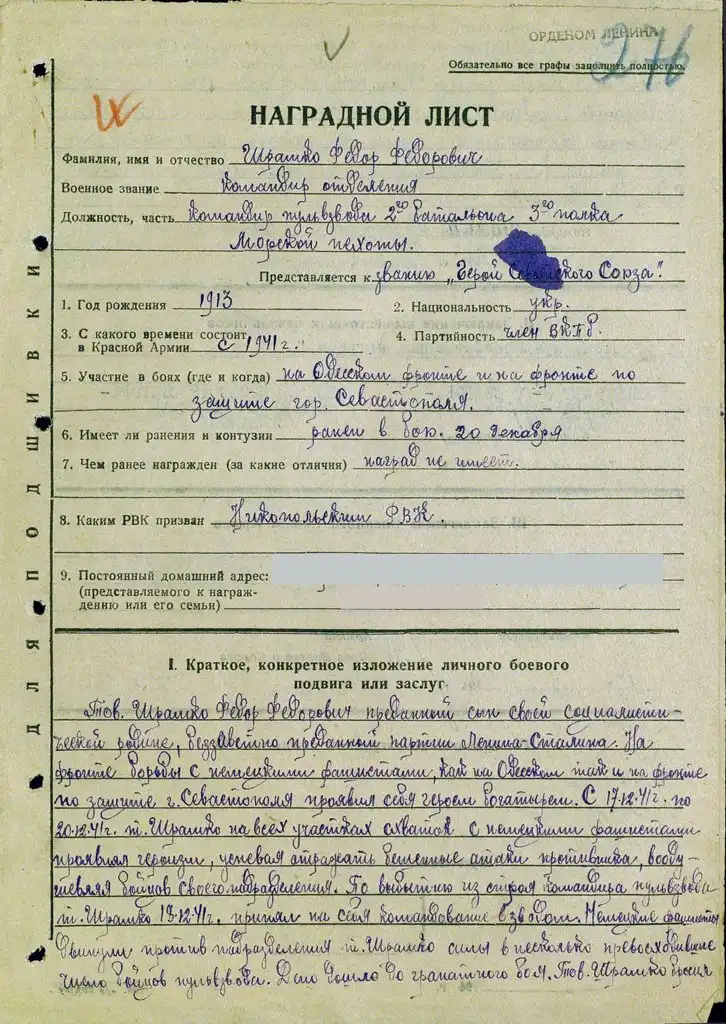 ОРДЕНОМ ЛЕНИНА
Обязательно все графы заполнить полностью.
НАГРАДНОЙ ЛИСТ
Фамилия, имя и отчество Шрамко Федор Федорович
Военное звание Командир отделения
Должность, часть Командир пульвзвода 2го батальона 3го полка
Морской пехоты.
Представляется к званию „Герой Советского Союза".
1. Год рождения 1913
2. Национальность укр.
3. С какого времени состоит
в Красной Армии с 1941 г.
4. Партийность член ВКПб.
5. Участие в боях (где и когда) на Одесском фронте и на фронте по
защите гор. Севастополя.
6. Имеет ли ранения и контузии ранен в бою. 20 декабря
7. Чем ранее награжден (за какие отличия) наград не имеет.
8. Каким РВК призван Никопольским РВК.
9. Постоянный домашний адрес:
(представляемого к награж-
дению или его семьи)
ДЛЯ ПОДШИВКИ
I. Краткое, конкретное изложение личного боевого
подвига или заслуг
Тов. Шрамко Федор Федорович преданный сын своей социалисти-
ческой родине, беззаветно преданной партии Ленина-Сталина. На
фронте борьбы с немецкими фашистами, как на Одесском так и на фронте
по защите г. Севастополя проявил себя героем богатырем. С 17.12.41г. по
20.12.41г. т. Шрамко на всех участках схваток с немецкими фашистами
проявлял героизм, успевая отражать бешенные атаки противника, вооду-
шевляя бойцов своего подразделения. По выбытию из строя командира пульвзвода
т. Шрамко 19.12.41г. принял на себя командование взводом. Немецкие фашисты
двинули против подразделения т. Шрамко силы в несколько превосходившие
число бойцов пульвзвода. Дело дошло до гранатного боя. Тов. Шрамко бросил